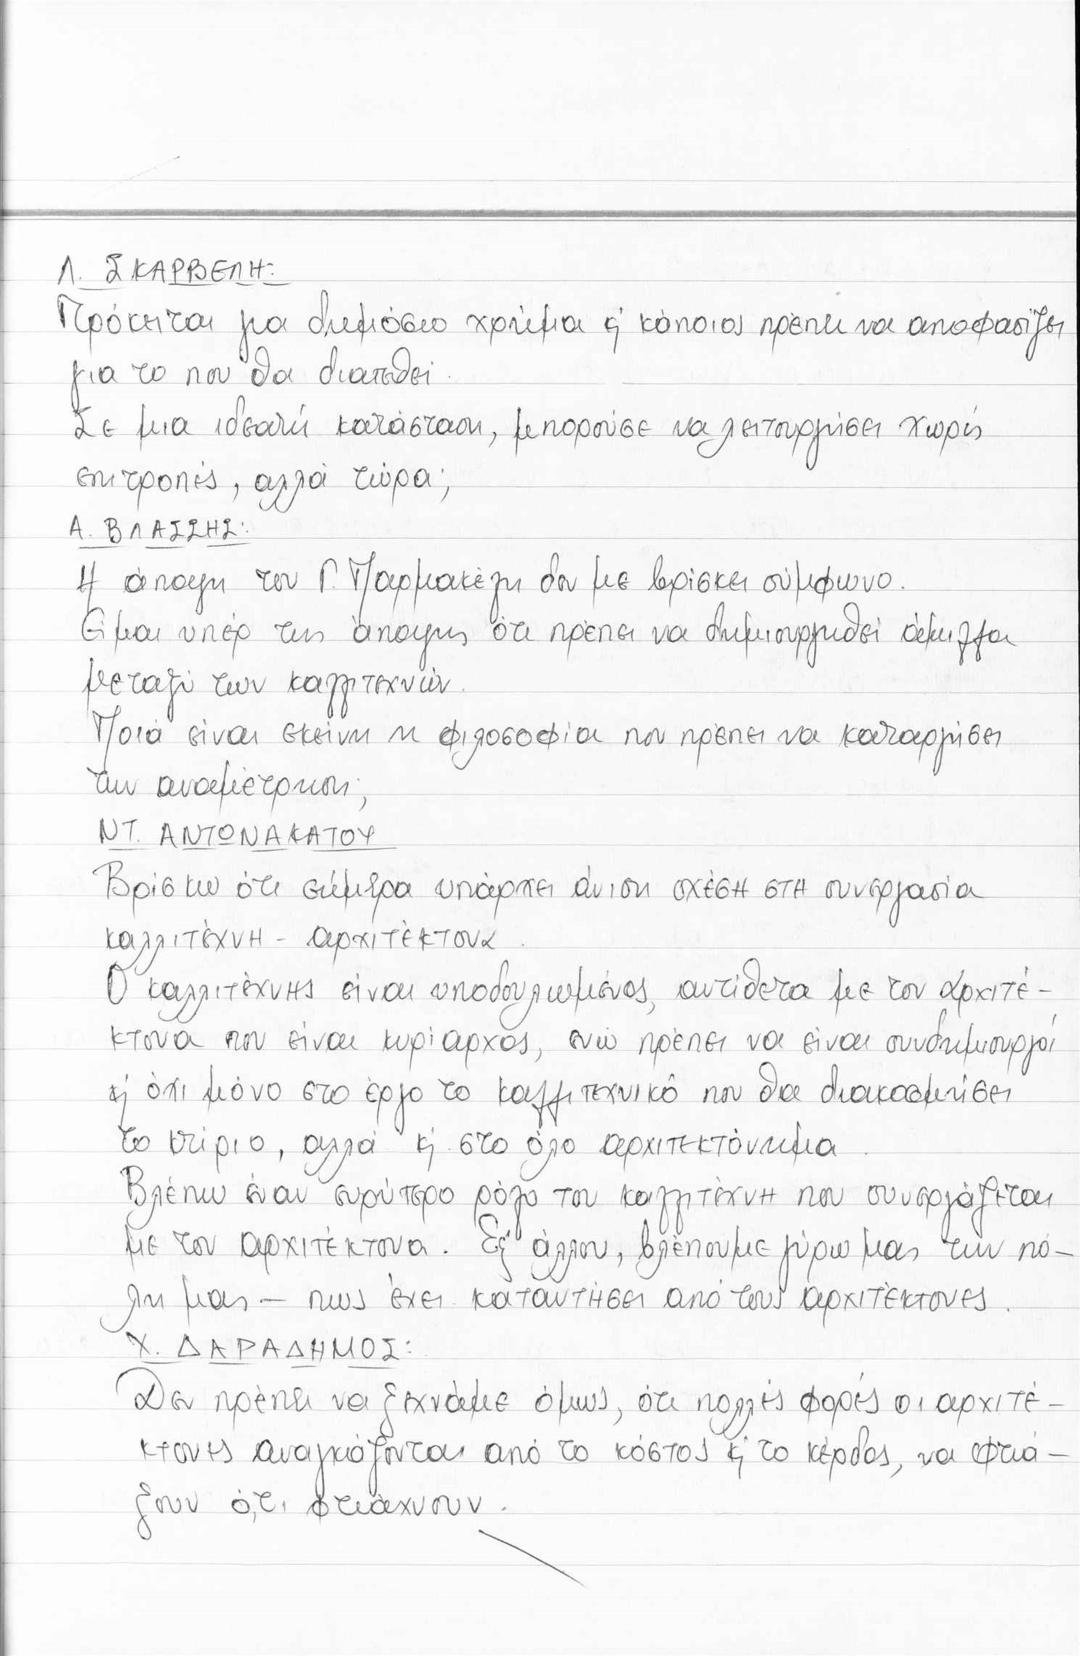 Λ. ΣΚΑΡΒΕΛΗ:
Πρόκειται για δημόσιο χρήμα κ' κάποιος πρέπει να αποφασίζει
για το που θα διατεθεί.
Σε μια ιδεατή κατάσταση, μπορούσε να λειτουργήσει χωρίς
επιτροπές, αλλά τώρα;
Α. ΒΛΑΣΣΗΣ:
Η άποψη του Γ. Παρμακέλη δεν με βρίσκει σύμφωνο.
Είμαι υπέρ της άποψης ότι πρέπει να δημιουργηθεί άμιλλα
μεταξύ των καλλιτεχνών.
Ποιά είναι εκείνη η φιλοσοφία που πρέπει να καταργήσει
την αναμέτρηση;
ΝΤ. ΑΝΤΩΝΑΚΑΤΟΥ
Βρίσκω ότι σήμερα υπάρχει άνιση σχέση στη συνεργασία
καλλιτέχνη - αρχιτέκτονα.
Ο καλλιτέχνης είναι υποδουλωμένος, αντίθετα με τον αρχιτέ-
κτονα που είναι κυρίαρχος, ενώ πρέπει να είναι συνδημιουργοί
κ' όχι μόνο στο έργο το καλλιτεχνικό που θα διακοσμήσει
το κτίριο, αλλά κ' στο όλο αρχιτεκτόνημα.
Βλέπω έναν ευρύτερο ρόλο του καλλιτέχνη που συνεργάζεται
με τον αρχιτέκτονα. Εξ' άλλου, βλέπουμε γύρω μας την πό-
λη μας - πως έχει καταντήσει από τους αρχιτέκτονες.
Χ. ΔΑΡΑΔΗΜΟΣ:
Δεν πρέπει να ξεχνάμε όμως, ότι πολλές φορές οι αρχιτέ-
κτονες αναγκάζονται από το κόστος κ' το κέρδος, να φτιά-
ξουν ό,τι φτιάχνουν.